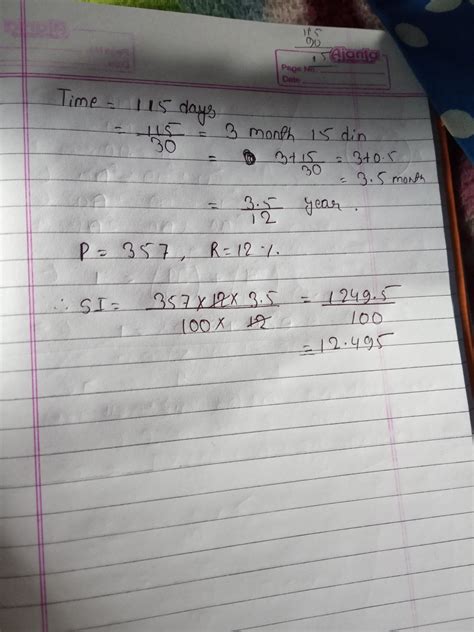 115
30
15
Ajanta
Page No.
Date
Time = 115 days
= 115/30 = 3 month 15 din
= 3+15/30 = 3+0.5
= 3.5 month
= 3.5/12 year.
P = 357, R = 12 %.
∴ SI = 357 × 12 × 3.5 / 100 × 12 = 1249.5/100
= 12.495